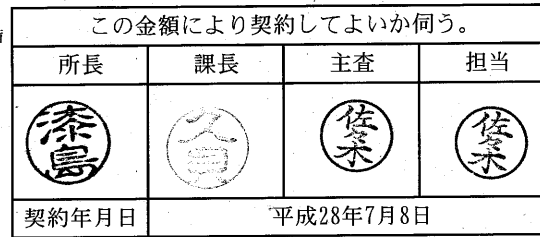 この金額により契約してよいか伺う。
所長 課長 主査 担当
漆島 佐々木 佐々木
契約年月日 平成28年7月8日